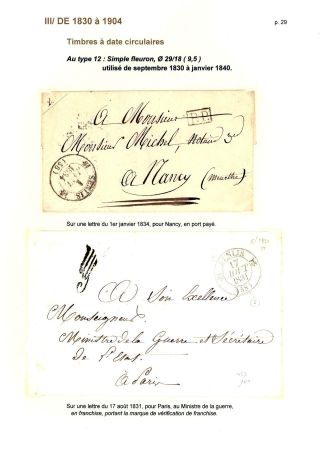 III/ DE 1830 à 1904
p. 29
Timbres à date circulaires
Au type 12 : Simple fleuron, Ø 29/18 ( 9,5 )
utilisé de septembre 1830 à janvier 1840.
A Monsieur
P.P.
Monsieur Michel, Notaire
A Nancy (Meurthe)
SENLIS
1834
Sur une lettre du 1er janvier 1834, pour Nancy, en port payé.
SENLIS
17
AOUT
1831
A Son Excellence
Monseigneur
Ministre de la Guerre et Sécrétaire
De l'Etat
A Paris
Sur une lettre du 17 août 1831, pour Paris, au Ministre de la guerre,
en franchise, portant la marque de vérification de franchise.